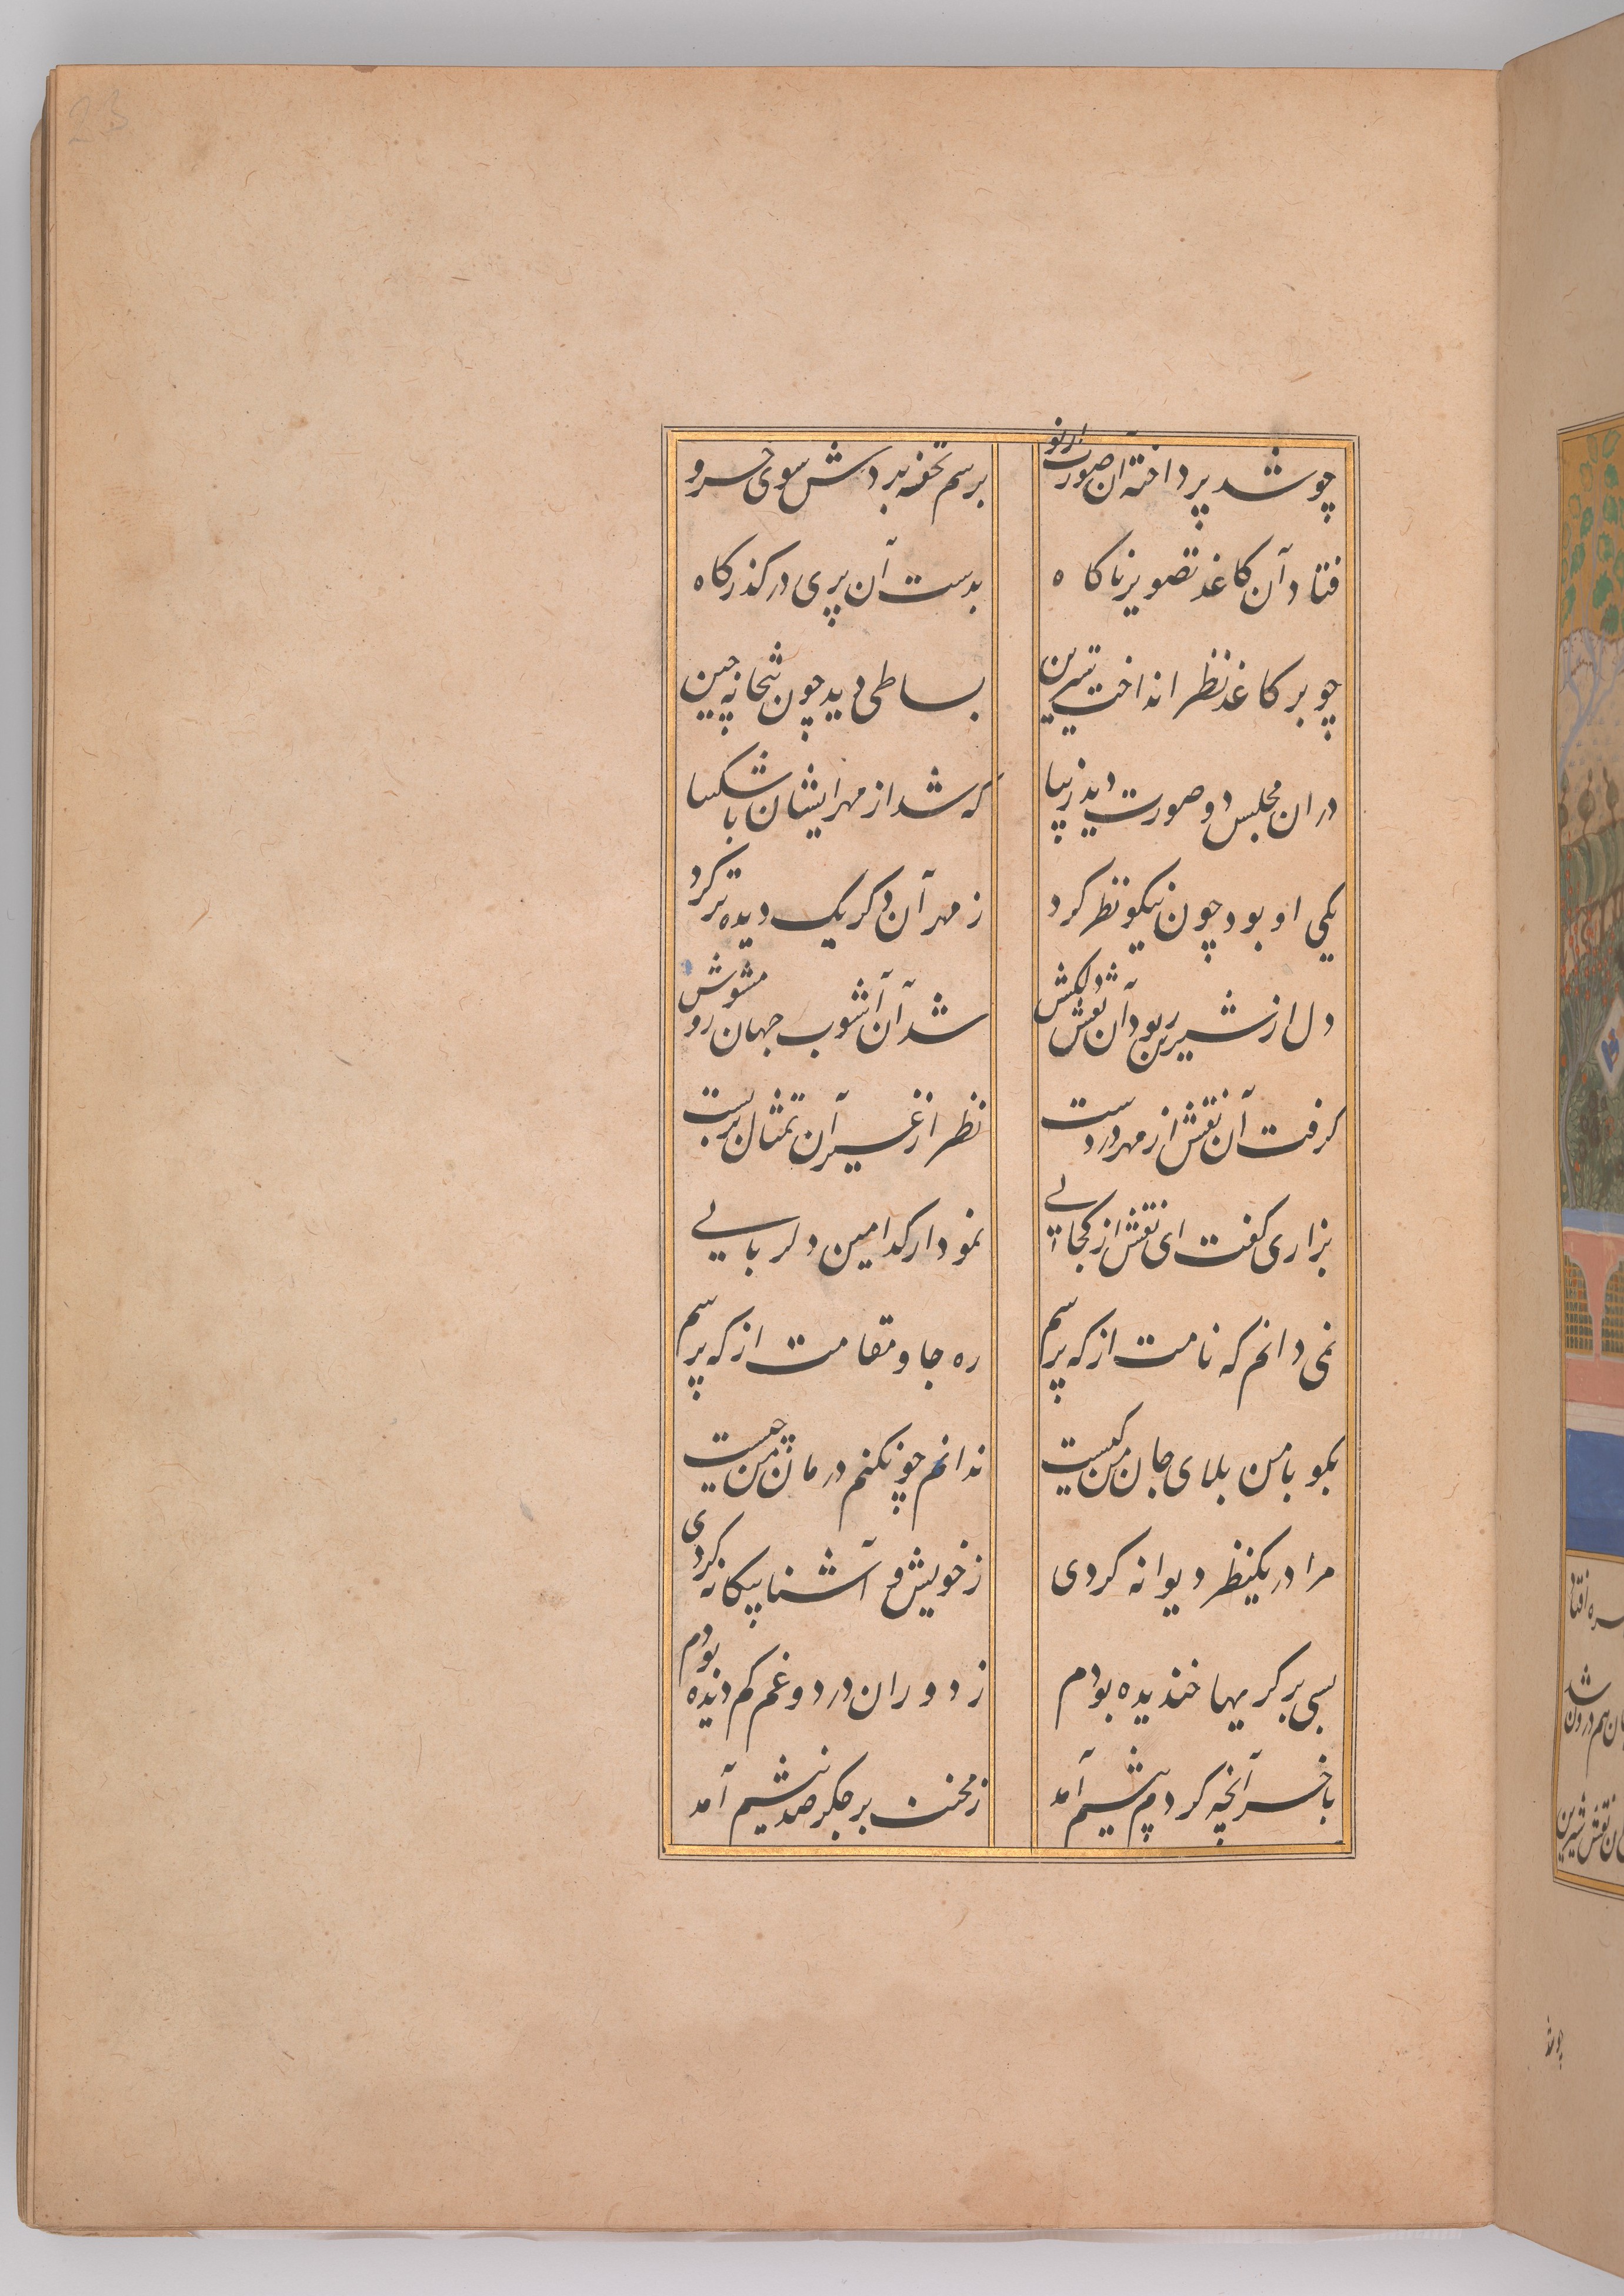 23
چو شد پرداخته آن صورت از نو
برسم تحفه بردش سوی خسرو
فتاد آن کاغذ تصویر ناکاه
بدست آن پری در کذرکاه
چو بر کاغذ نظر انداخت شیرین
بساطی دید چون بتخانه چین
دران مجلس دو صورت دید زیبا
که شد از مهر ایشان ناشکیبا
یکی او بود چون نیکو نظر کرد
ز مهر آن دکر یک دیده تر کرد
دل از شیرین ربود آن نقش دلکش
شد آن آشوب جهان رو مشوش
کرفت آن نقش از مهر در دست
نظر از غیر آن تمثال بربست
بزاری کفت ای نقش از کجائی
نمودار کدامین دلربایی
نمی دانم که نامت از که پرسم
ره جا و مقامت از که پرسم
بکو با من بلای جان من کیست
ندانم چونکنم درمان من چیست
مرا در یکنظر دیوانه کردی
ز خویش و آشنا بیکانه کردی
بسی بر کریها خندیده بودم
ز دوران درد و غم کم دیده بودم
بآخر آنچه کردم پیشم آمد
ز محنت بر جکر صد نیشم آمد
چو شد